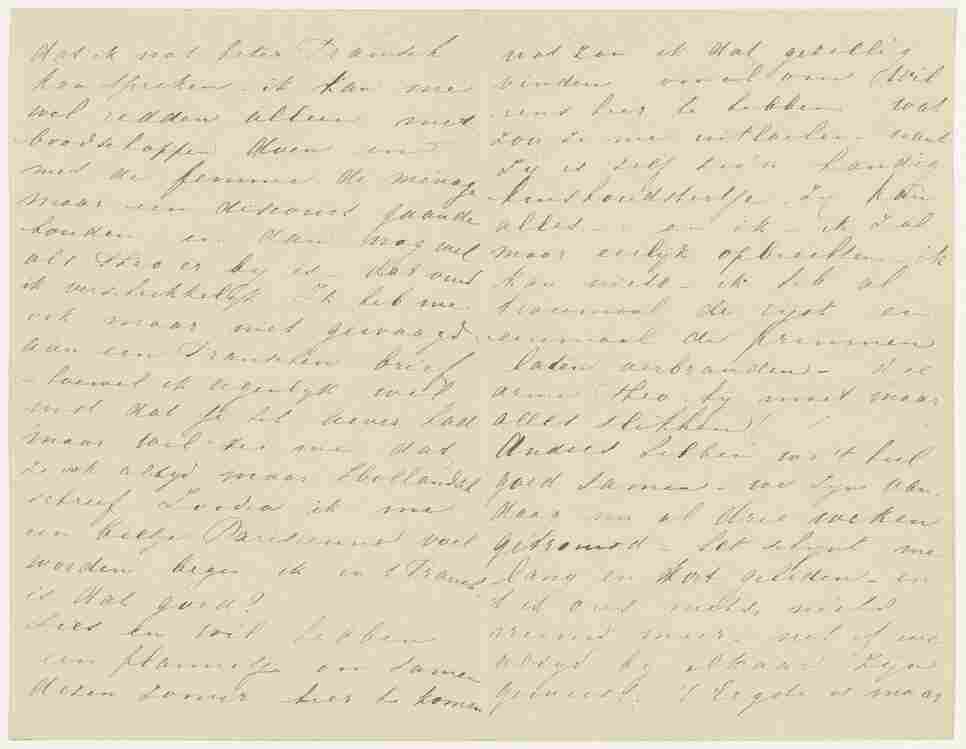 dat ik niet beter Fransch
kan spreken. ik kan me
wel redden alleen met
boodschappen doen en
met de femme de ménage
maar een discours gaande
houden en dan nog wel
als Theo er by is – dat vind
ik verschrikkelijk. Ik heb me
ook maar niet gewaagd
aan een Franschen brief
– hoewel ik eigenlyk weet
dat je het liever had
maar wil zei me dat
ze ook altyd maar Hollandsch
schreef Zoodra ik me
een beetje Parisienne voel
worden begin ik in 't Fransch
is dat goed?
Lies en Wil hebben
een plannetje om samen
dezen zomer hier te komen
wat zou ik dat gezellig
vinden vooral om Wil
eens hier te hebben wat
zou ze me uitlachen – want
zy is zelf zoo'n handig
huishoudstertje. zy kan
alles – en ik – ik zal
maar eerlyk opbiechten – ik
kan niets – ik heb al
tweemaal de ryst en
eenmaal de pruimen
laten verbranden – die
arme Theo hy moet maar
alles slikken!
Anders hebben we 't heel
goed samen – we zyn van
daar nu al drie weken
getrouwd – het schynt me
lang en kort geleden – en
't is ons niets, niets
vreemd meer – net of we
altyd by elkaar zyn
geweest. 't Ergste is maar